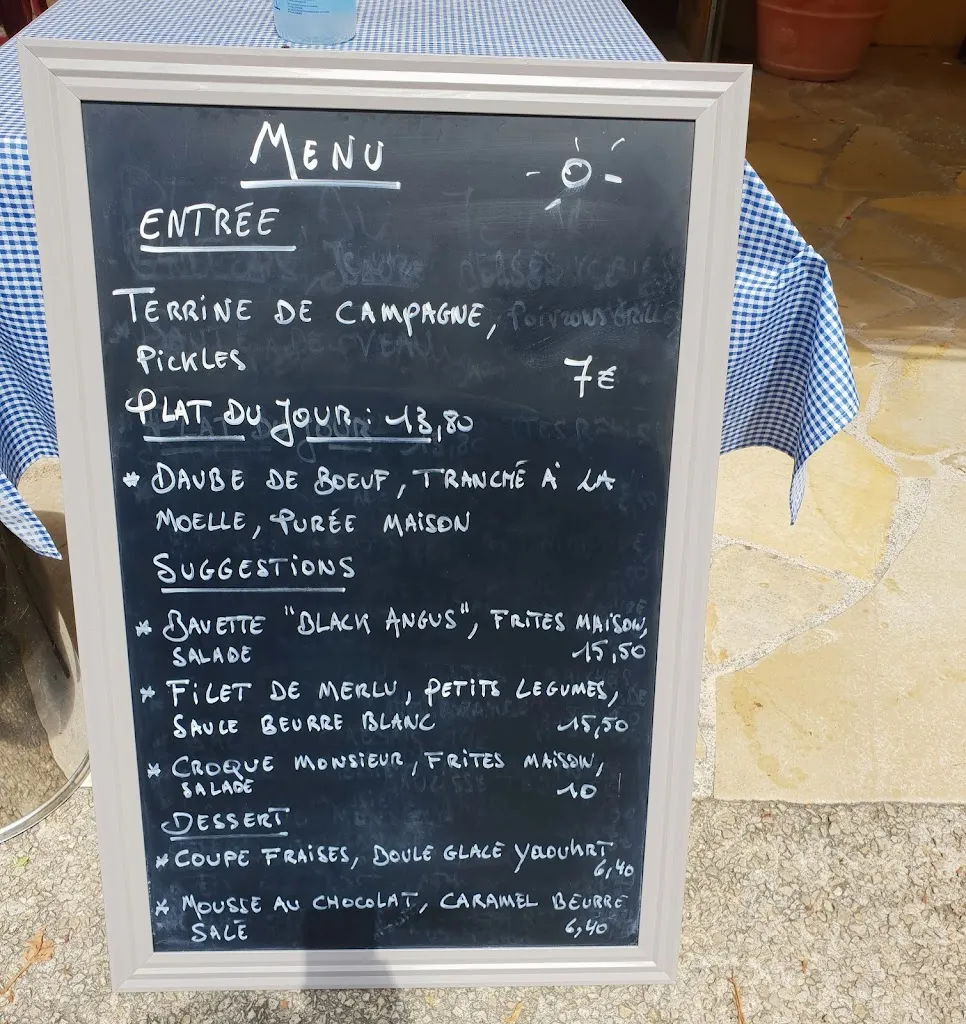 MENU
ENTRÉE
TERRINE DE CAMPAGNE,
PICKLES
7€
PLAT DU JOUR : 13,80
* DAUBE DE BOEUF, TRANCHE À LA
MOELLE, PURÉE MAISON
SUGGESTIONS
* BAVETTE "BLACK ANGUS", FRITES MAISON,
SALADE 15,50
* FILET DE MERLU, PETITS LEGUMES,
SAUCE BEURRE BLANC 15,50
* CROQUE MONSIEUR, FRITES MAISON,
SALADE 10
DESSERT
* COUPE FRAISES, BOULE GLACE YAOUHRT
6,40
* MOUSSE AU CHOCOLAT, CARAMEL BEURRE
SALÉ 6,40